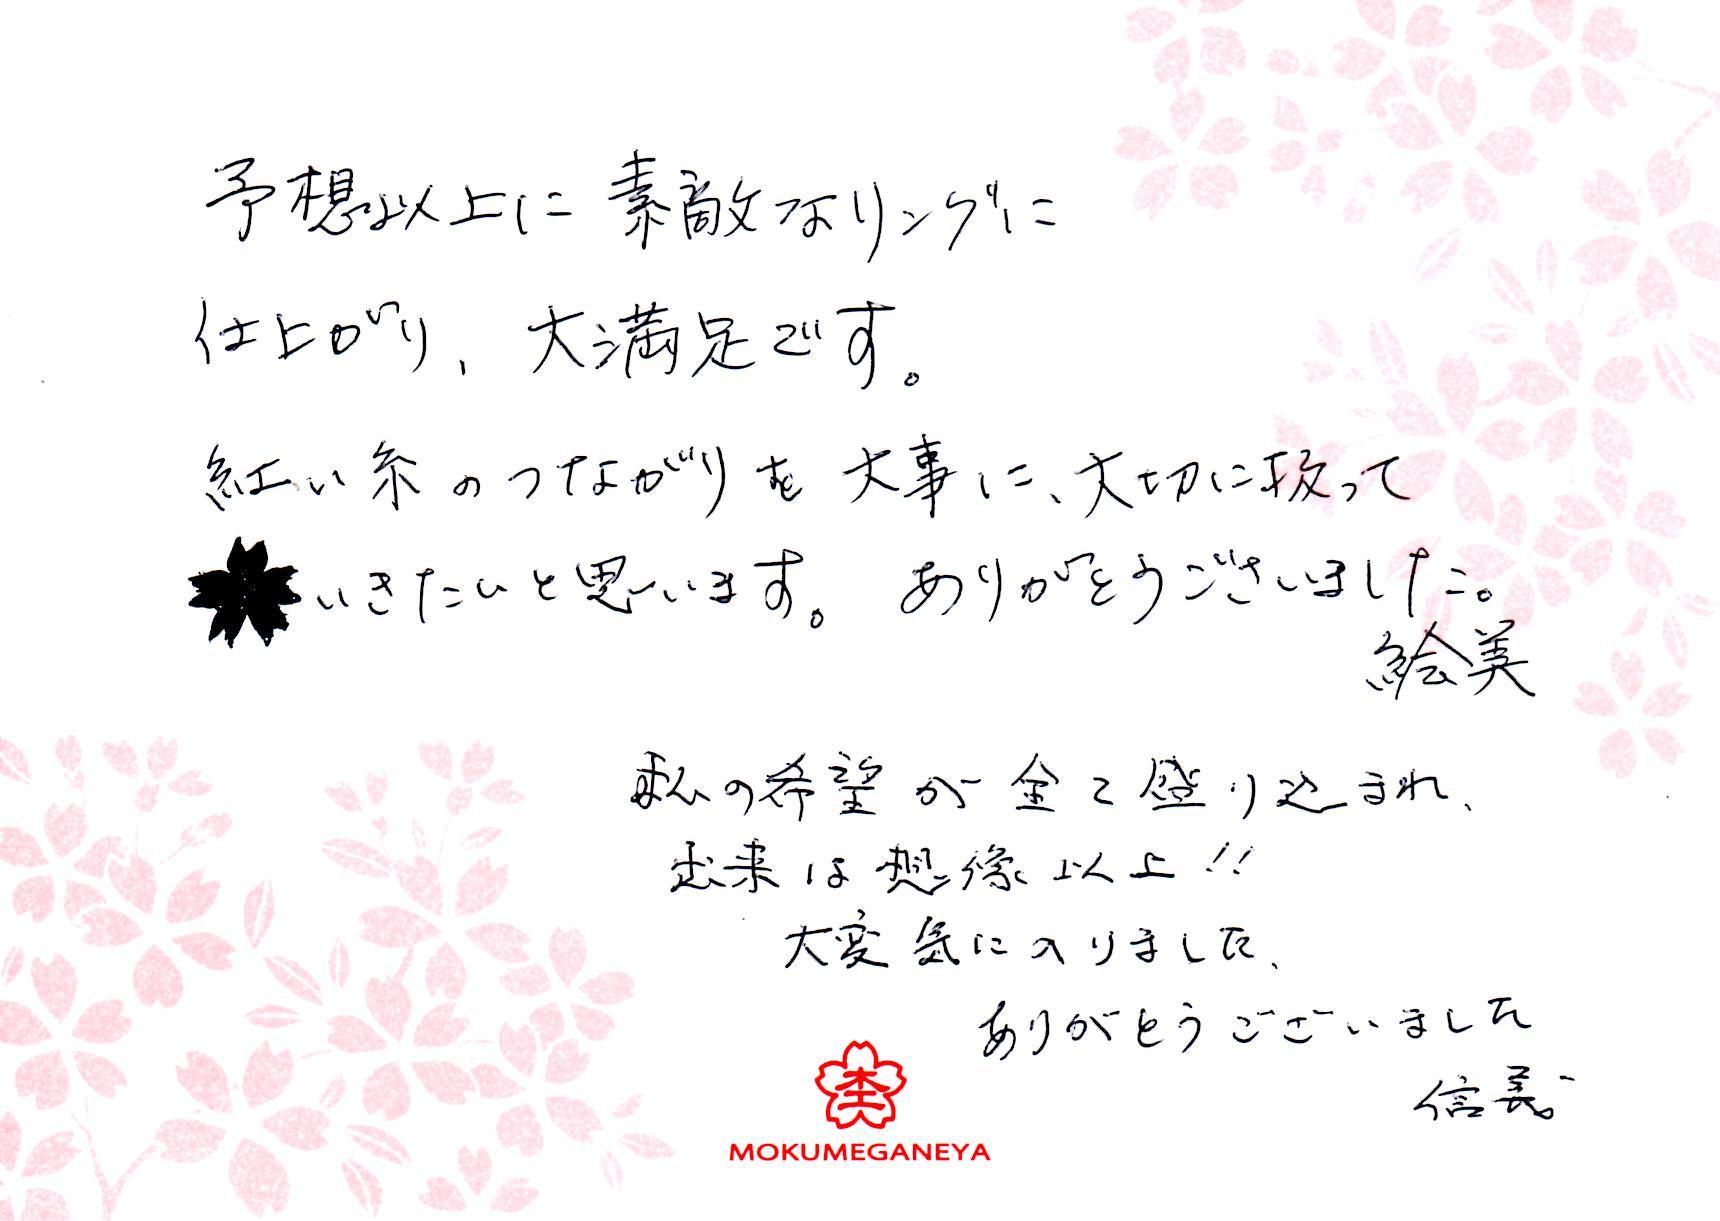 予想以上に素敵なリングに
仕上がり、大満足です。
紅い糸のつながりを大事に、大切に扱って
いきたいと思います。ありがとうございました。
絵美
私の希望が全て盛り込まれ、
出来は想像以上!!
大変気に入りました、
ありがとうございました
信義
杢
MOKUMEGANEYA